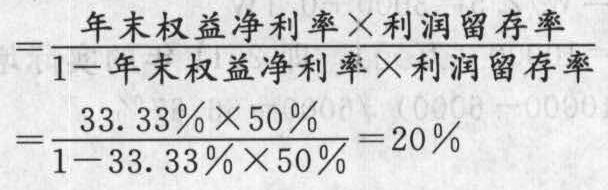 =年末权益净利率×利润留存率
1-年末权益净利率×利润留存率
=33.33%×50%
1-33.33%×50%=20%